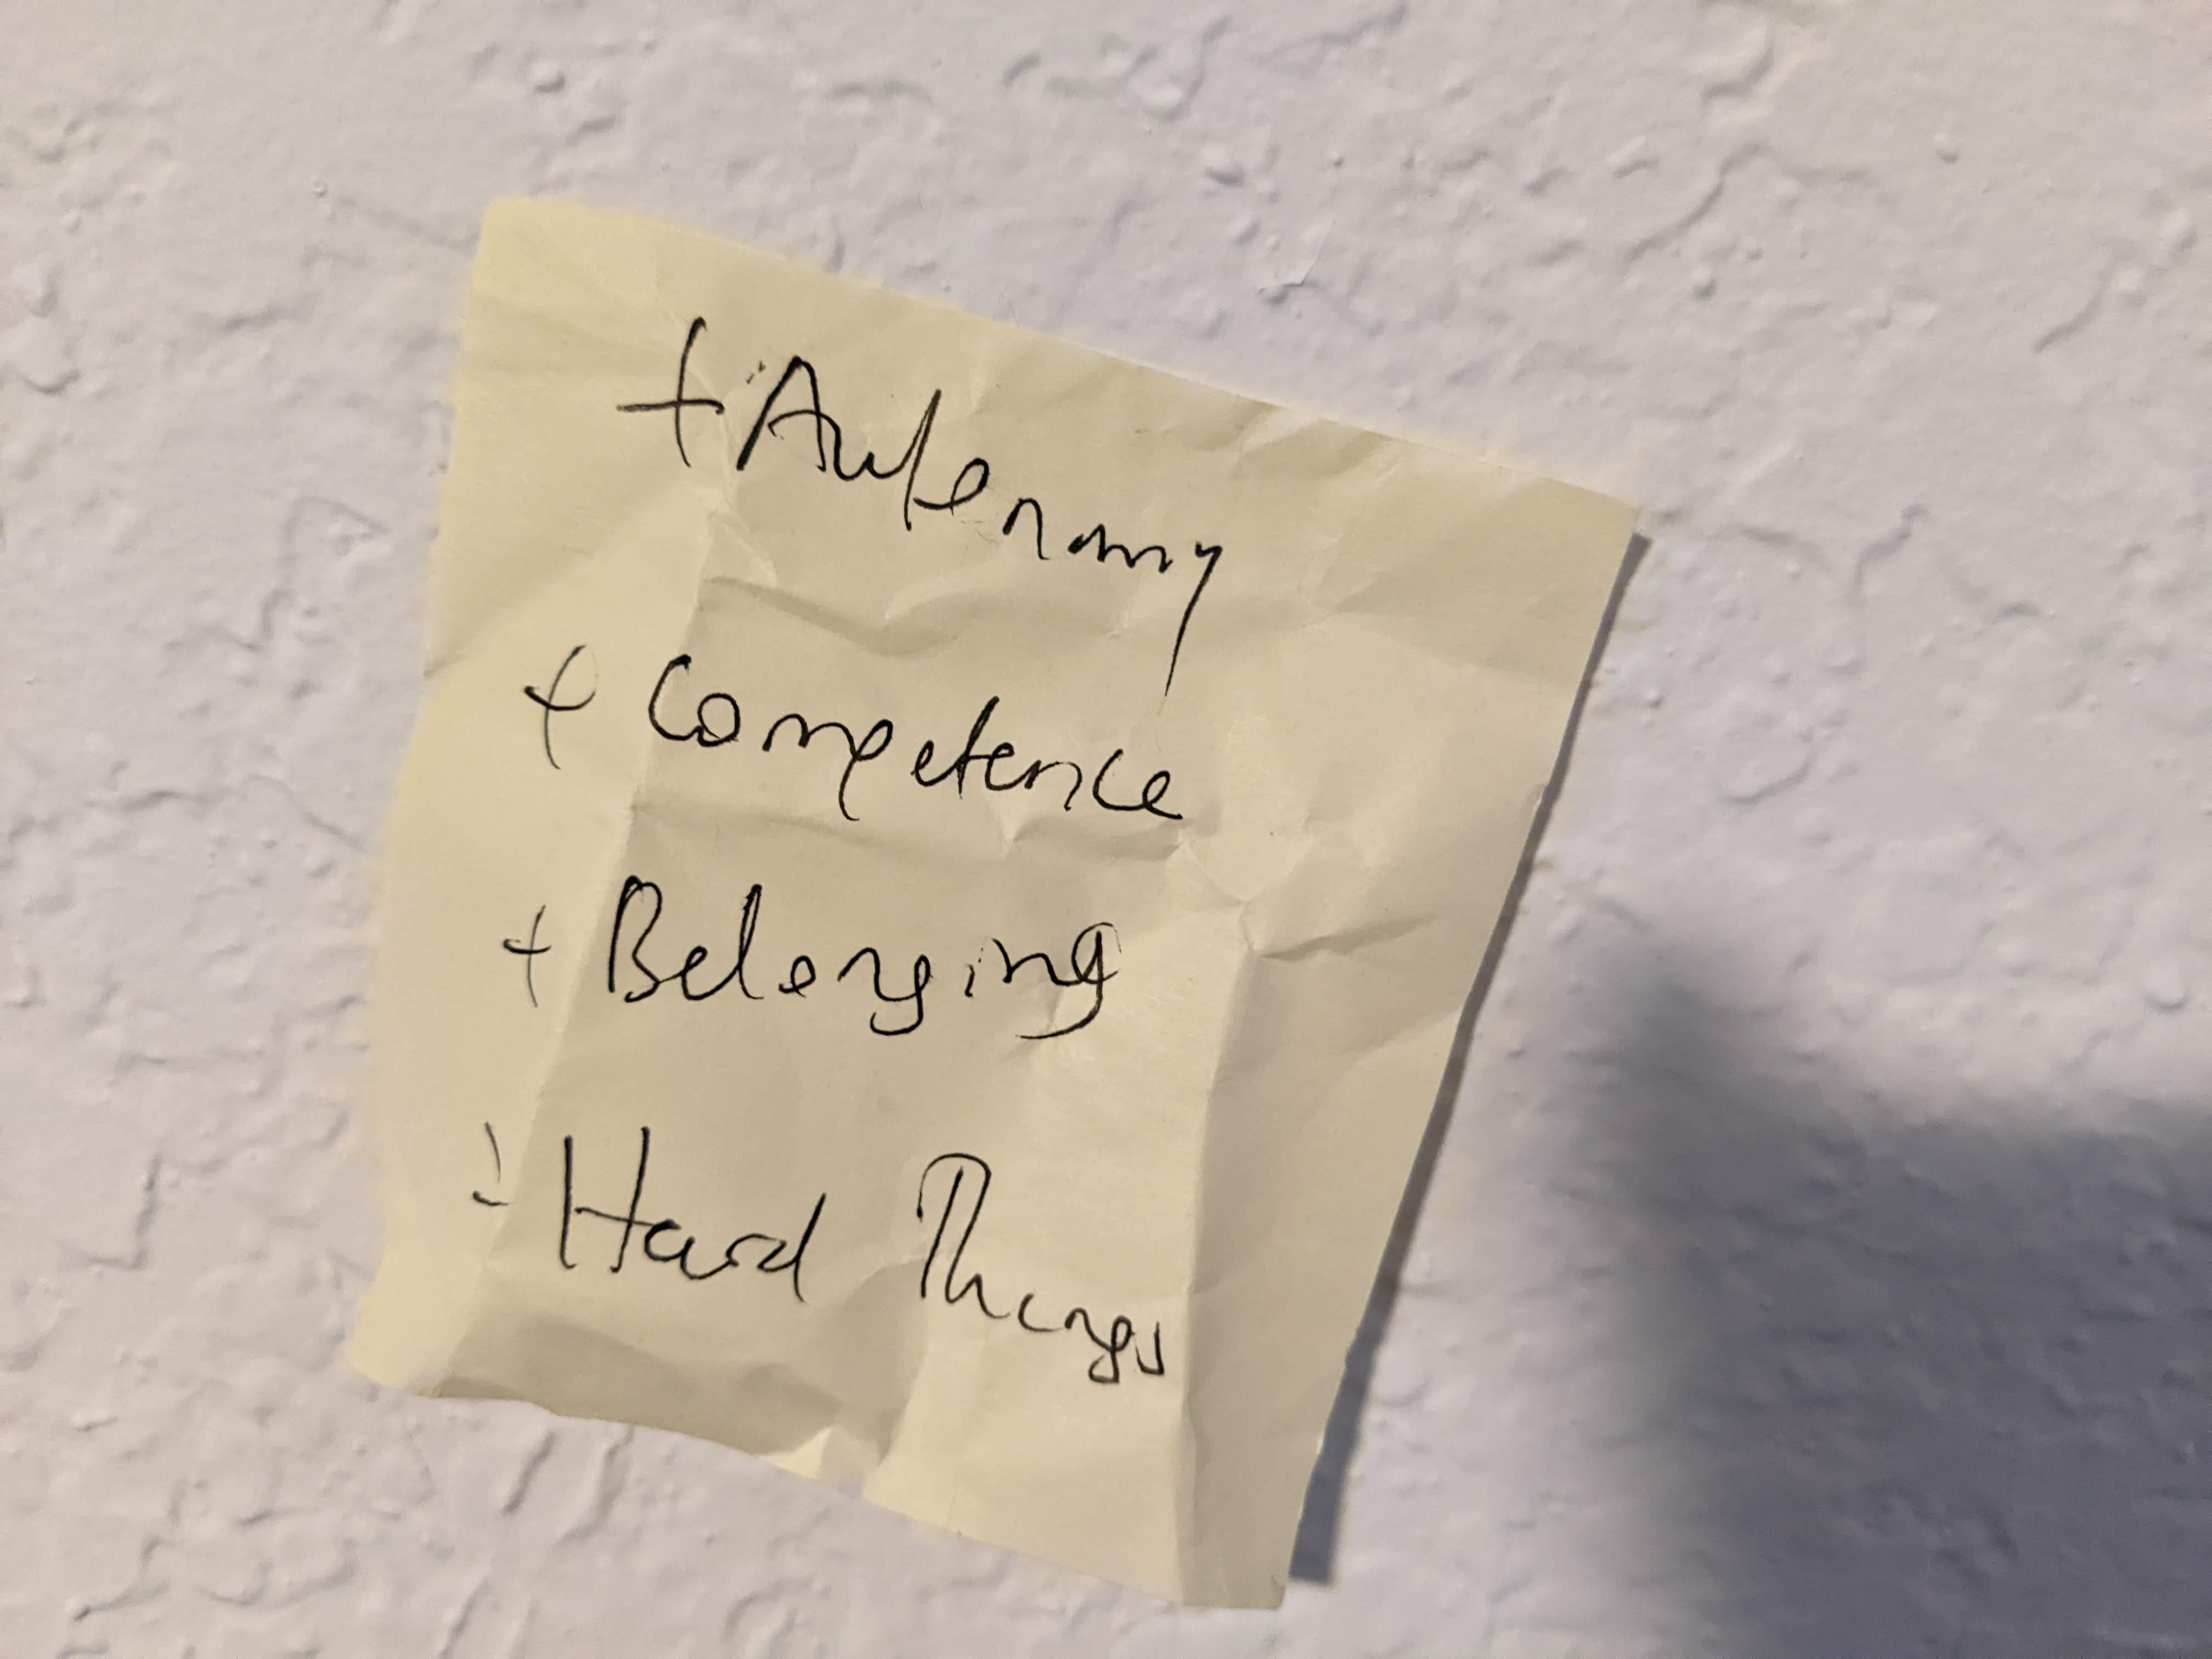 + Autonomy
+ Competence
+ Belonging
+ Hard Things